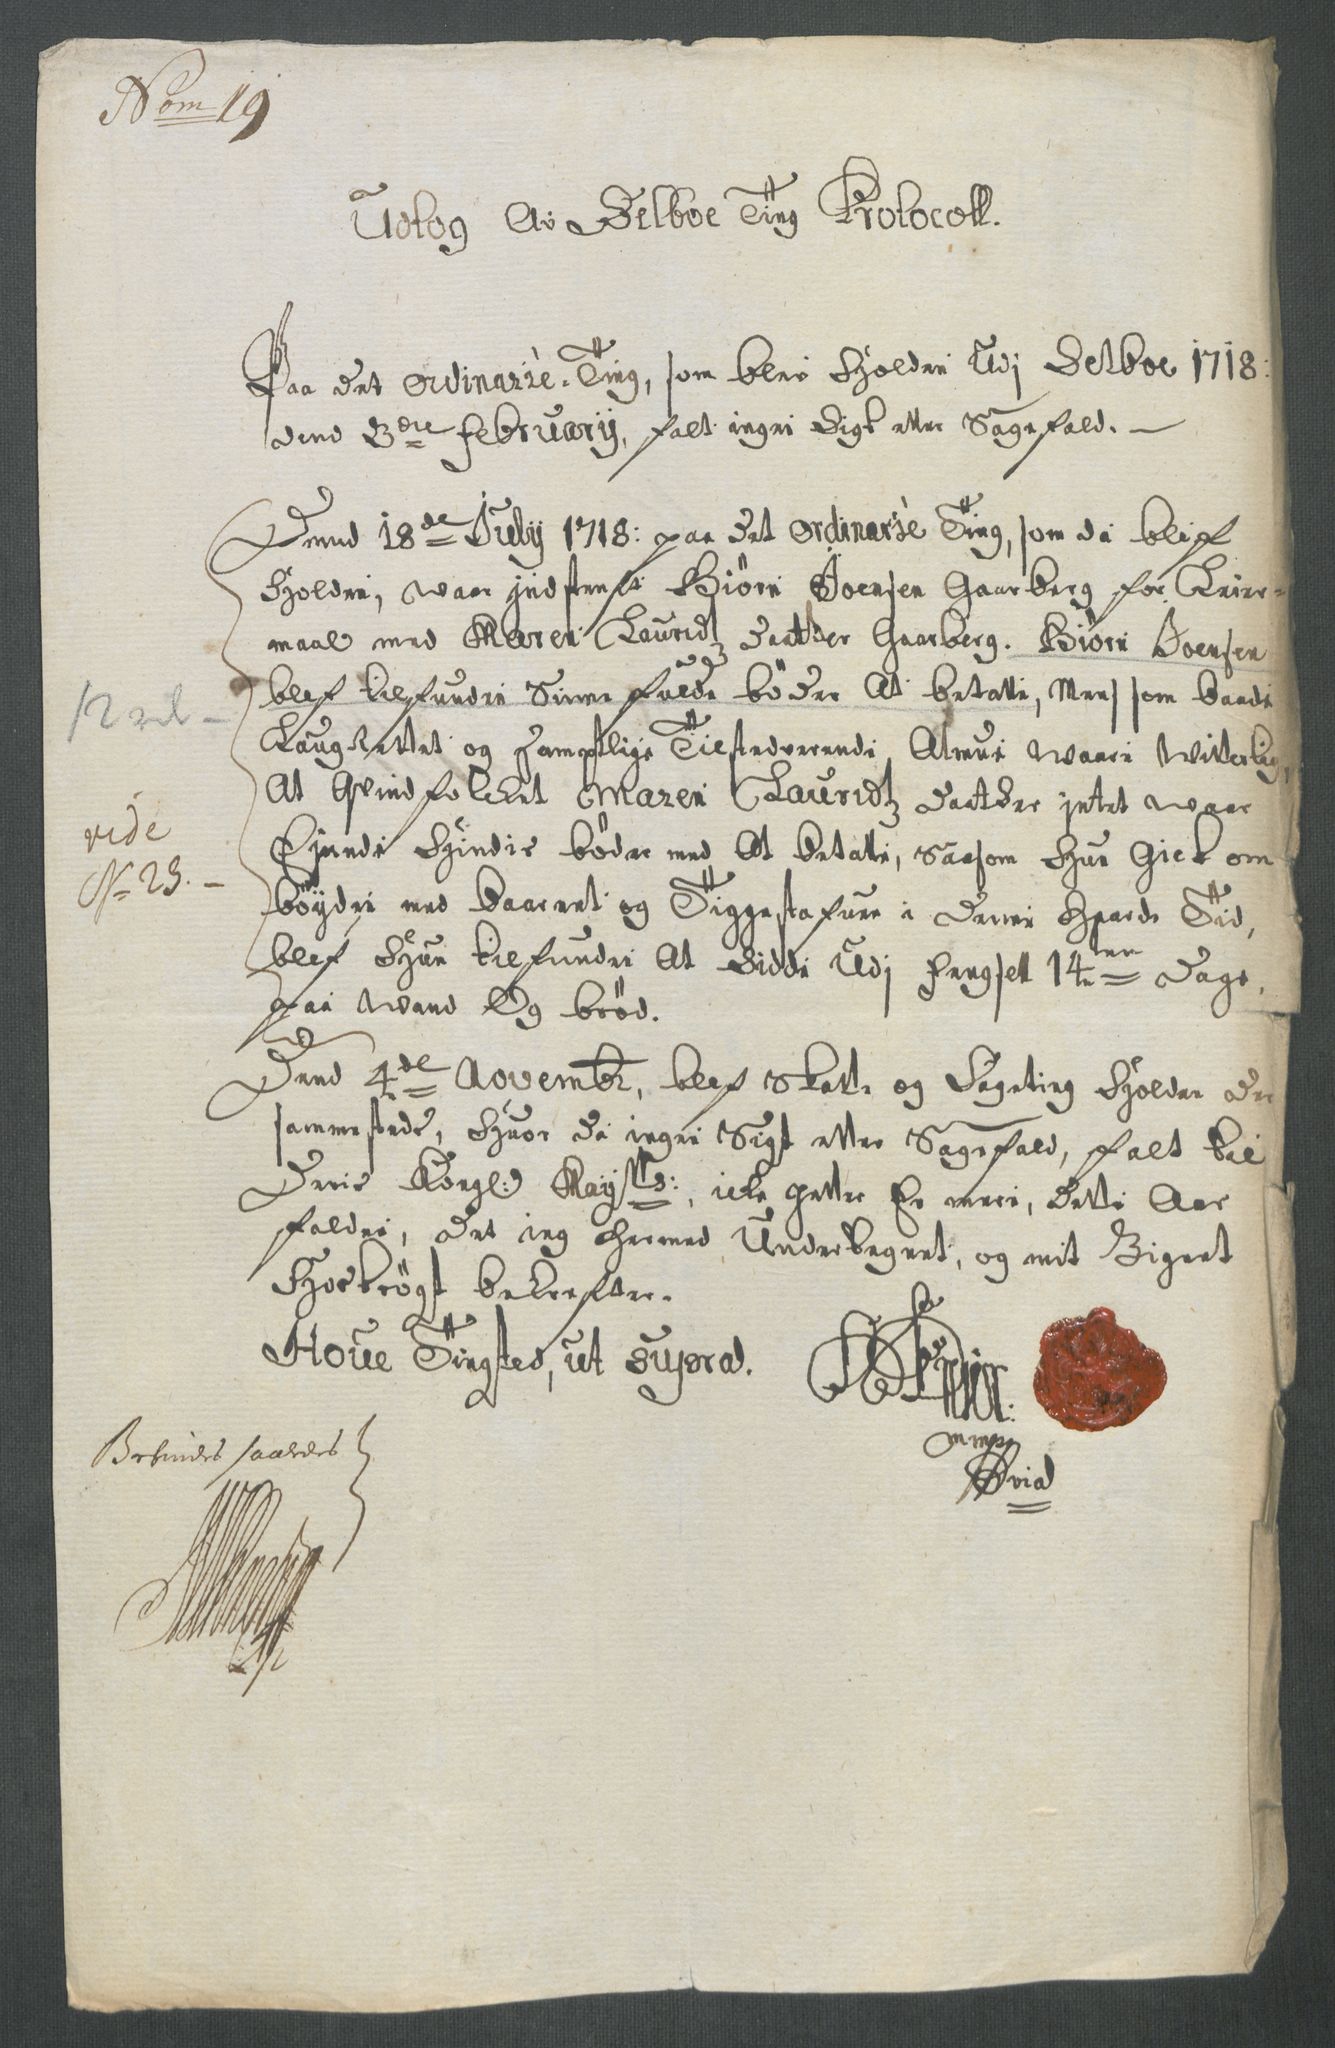 Nom 19
Udtog Av Selboe Ting Protocoll.
Paa det ordinarie Ting, som blev Holden Udj Selboe 1718:
dend 3die February, falt ingen Sigt eller Sagefald. —
Dend 18de July 1718: paa det ordinarie Ting, som da blef
Holden, waar indstenft Biörn Joensen Gaarberg for Leier-
maal med Maren Lauridtz daatter Gaarberg. Biörn Joensen
blef tilfunden Sinne fulde böder At betalle, Mens som baade
Laugrettet og samptlige Tilstedverende Almue waare Witterlig,
At Qvindfolcket Maren Lauridtz daatter intet waar
Ejende Hindis böder med At betalle, saasom Hun Gick om
böyden med baarnet og Tiggestafuen i denne Haarde Tid,
blef Hun tilfunden At Sidde Udj fengsell 14ten Dage,
paa Wand Og bröd.
12 rd —
vide
No 23. —
Dend 4de Novembr, blef Skatte og Sageting Holden der
sammesteds, Huor da ingen Sigt eller Sagefald, falt til
Deris Kongl: May tts:, icke heller Er mere, dette Aar
falden, det ieg hermed Undertegnet, og mit Zignet
Hoströgt bekrefter.
Houe Tingsted, ut supra.
mmpp
Befindes saaledes